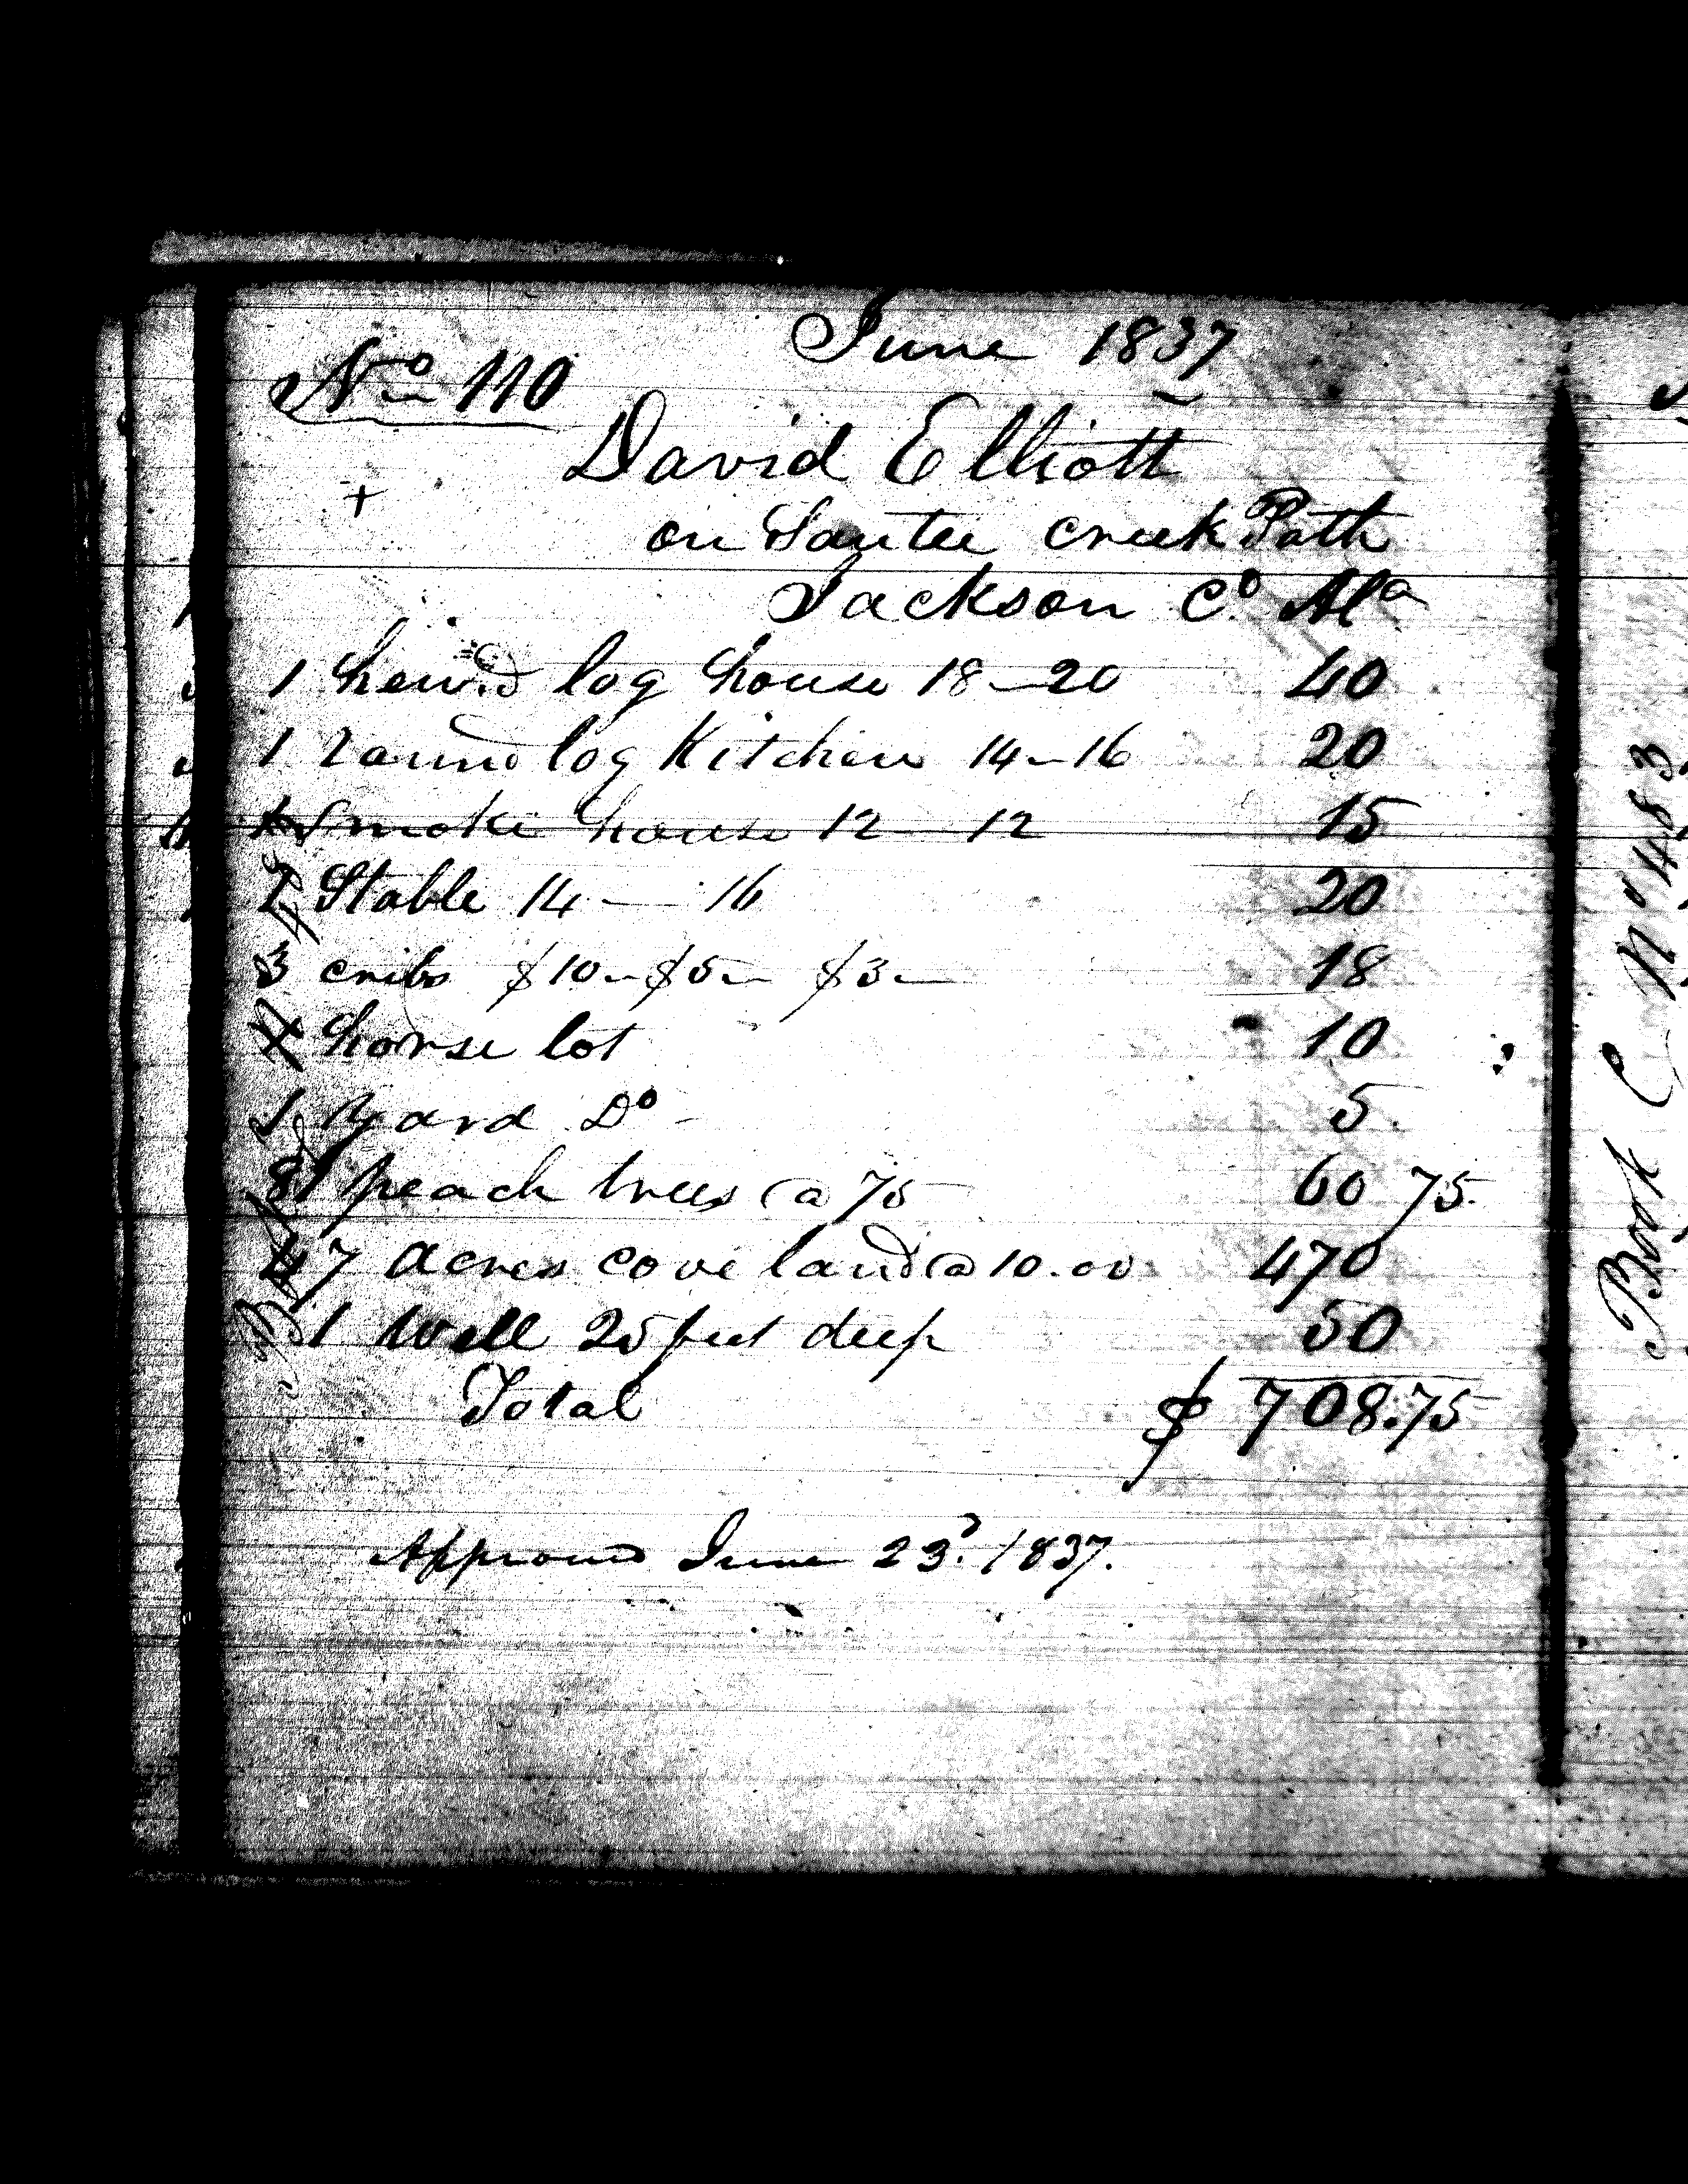 June 1837
No 110
David Elliott
+
on Santee creek Path
Jackson Co. Ala
1 hew.d log house 18-20 40
1 round log Kitchen 14-16 20
1 Smoke house 12-12 15
1 Stable 14-16 20
3 cribs $10- $5- $3- 18
1 horse lot 10
1 Yard Do - 5.
81 peach trees @ 75 60 75
47 acres cove land @ 10.00 470
1 Well 25 feet deep 50
Total $ 708.75
Approved June 23d. 1837.
Book C No 1483